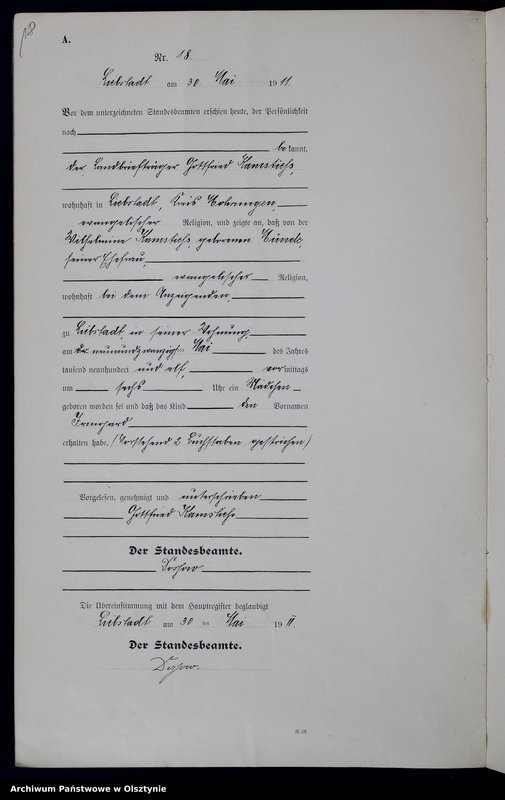 18
A.
Nr. 18.
Liebstadt am 30. Mai 1911.
Vor dem unterzeichneten Standesbeamten erschien heute, der Persönlichkeit
nach
be kannt,
der Landbriefträger Gottfried
wohnhaft in Liebstadt, Kreis Mohrungen
evangelischer Religion, und zeigte an, daß von der
Wilhelmine geborenen
seiner Ehefrau,
evangelischer Religion,
wohnhaft bei dem Anzeigenden,
zu Liebstadt, in seiner Wohnung,
am neunundzwanzigsten Mai des Jahres
tausend neunhundert und elf, vormittags
um sechs Uhr ein Mädchen
geboren worden sei und daß das Kind den Vornamen
Irmgard
erhalten habe. (Vorstehend 2 Buchstaben gestrichen)
Vorgelesen, genehmigt und unterschrieben
Gottfried
Der Standesbeamte.
Die Übereinstimmung mit dem Hauptregister beglaubigt
Liebstadt am 30 ten Mai 1911.
Der Standesbeamte.
Archiwum Państwowe w Olsztynie